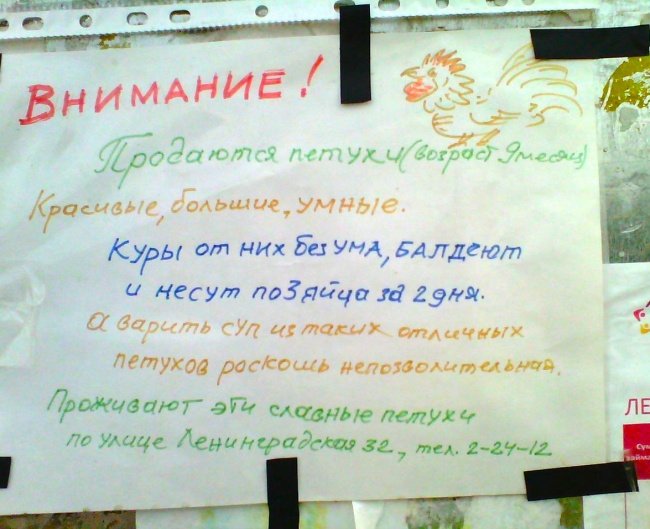 ВНИМАНИЕ!
Продаются петухи (возраст 9 месяц)
Красивые, большие, умные.
Куры от них без ума, БАЛДеют
и несут по 3 яйца за 2 дня.
А варить суп из таких отличных
петухов роскошь непозволительная.
Проживают эти славные петухи
по улице Ленинградская 32, тел. 2-24-12
ЛЕ